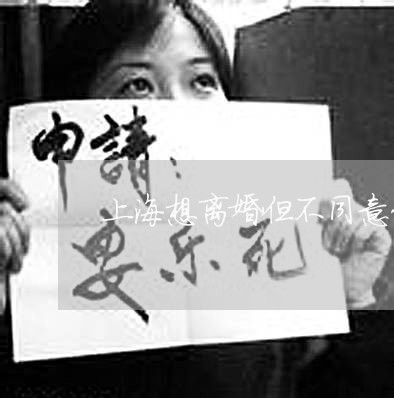 申請：
上海想离婚但不同意
安乐死